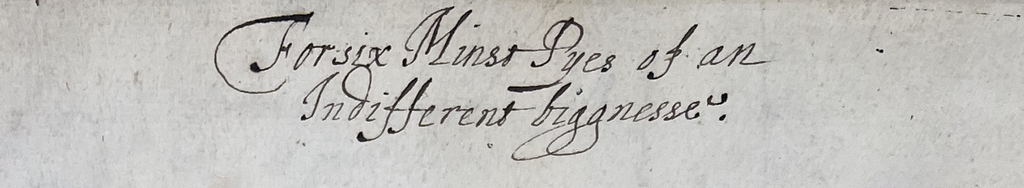 For six Minst Pyes of an
Indifferent biggnesse.